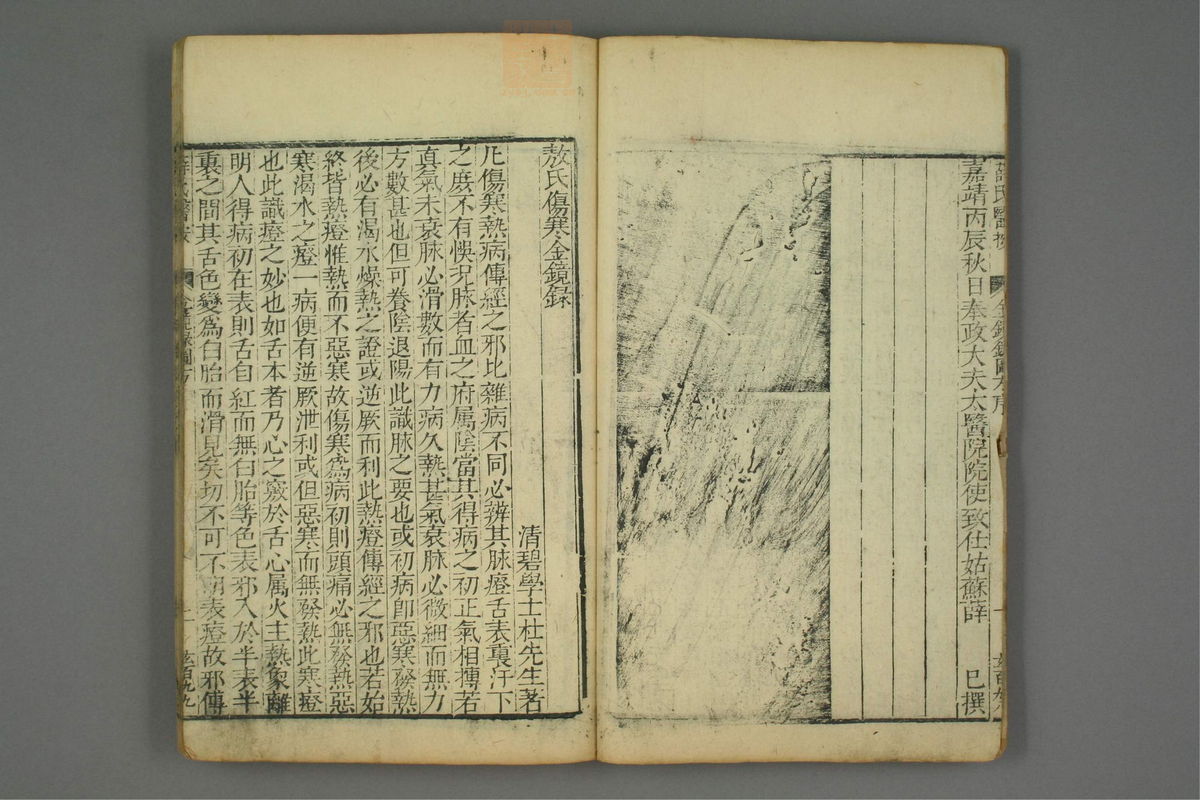 嘉靖丙辰秋日奉政大夫太醫院院使致仕姑蘇薛　已撰
敖氏傷寒金鏡録
清碧學士杜先生著
凡傷寒熱病傳經之邪比雜病不同必辨其脉證舌表裏汗下
之庶不有悞况脉者血之府属陰當其得病之初正氣相摶若
真氣未衰脉必滑數而有力病久熱甚氣衰脉必微細而無力
方數甚也但可養陰退陽此識脉之要也或初病即惡寒發熱
後必有渴水燥熱之證或逆厥而利此熱證傳經之邪也若始
終皆熱證惟熱而不惡寒故傷寒爲病初則頭痛必無發熱惡
寒渴水之證一病便有逆厥泄利或但惡寒而無發熱此寒證
也此識證之妙也如舌本者乃心之竅於舌心属火主熱象離
明人得病初在表則舌自紅而無白胎等色表邪入於半表半
裏之間其舌色變爲白胎而滑見矣切不可不明表證故邪傳